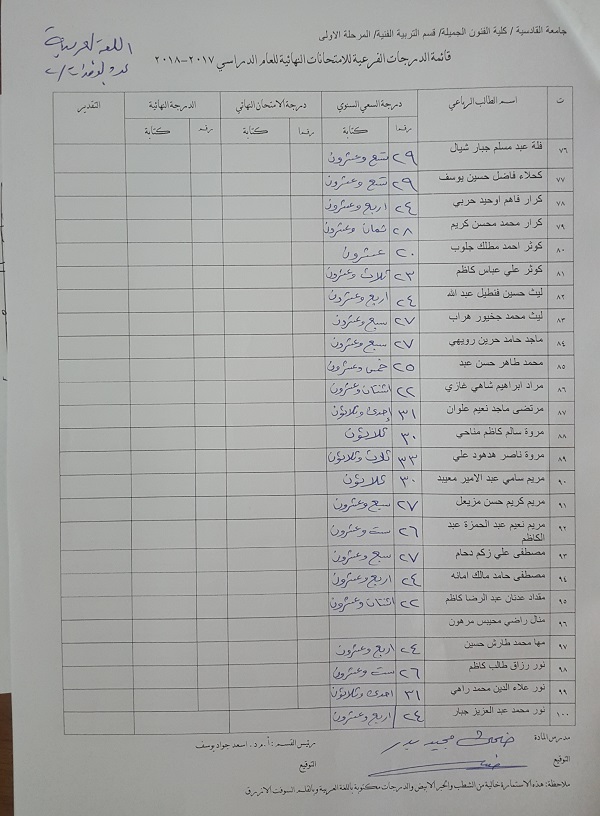 جامعة القادسية / كلية الفنون الجميلة/ قسم التربية الفنية/ المرحلة الاولى
قائمة الدرجات الفرعية للامتحانات النهائية للعام الدراسي ٢٠١٧-٢٠١٨
اللغة العربية
ت اسم الطالب الرباعي درجة السعي السنوي درجة الامتحان النهائي الدرجة النهائية التقدير
رقما كتابة رقما كتابة رقما كتابة
٧٦ فلة عبد مسلم جبار شيال ٢٩ تسع وعشرون
٧٧ كحلاء فاضل حسين يوسف ٢٩ تسع وعشرون
٧٨ كرار فاهم اوحيد حربي ٢٤ اربع وعشرون
٧٩ كرار محمد محسن كريم ٢٨ ثمان وعشرون
٨٠ كوثر احمد مطلك جلوب ٢٠ عشرون
٨١ كوثر علي عباس كاظم ٢٣ ثلاث وعشرون
٨٢ ليث حسين فنطيل عبد الله ٢٤ اربع وعشرون
٨٣ ليث محمد جخيور هراب ٢٧ سبع وعشرون
٨٤ ماجد حامد حرين رويهي ٢٧ سبع وعشرون
٨٥ محمد طاهر حسن عبد ٢٥ خمس وعشرون
٨٦ مراد ابراهيم شاهي غازي ٢٢ اثنتان وعشرون
٨٧ مرتضى ماجد نعيم علوان ٣١ إحدى وثلاثون
٨٨ مروة سالم كاظم مناحي ٣٠ ثلاثون
٨٩ مروة ناصر هدهود علي ٣٣ ثلاث وثلاثون
٩٠ مريم سامي عبد الامير معيبد ٣٠ ثلاثون
٩١ مريم كريم حسن مزيعل ٢٧ سبع وعشرون
٩٢ مريم نعيم عبد الحمزة عبد الكاظم ٢٦ ست وعشرون
٩٣ مصطفى علي زكم دحام ٢٧ سبع وعشرون
٩٤ مصطفى حامد مالك امانه ٢٤ اربع وعشرون
٩٥ مقداد عدنان عبد الرضا كاظم ٢٢ اثنتان وعشرون
٩٦ منال راضي محيبس مرهون
٩٧ مها محمد طارش حسين ٢٤ اربع وعشرون
٩٨ نور رزاق طالب كاظم ٢٦ ست وعشرون
٩٩ نور علاء الدين محمد راهي ٣١ احدى وثلاثون
١٠٠ نور محمد عبد العزيز جبار ٢٤ اربع وعشرون
مدرس المادة مجيد بدر رئيس القسم : أ.م.د. اسعد جواد يوسف
التوقيع التوقيع
ملاحظة: هذه الاستمارة خالية من الشطب والحبر الابيض والدرجات مكتوبة باللغة العربية وبالقلم السوفت الازرق